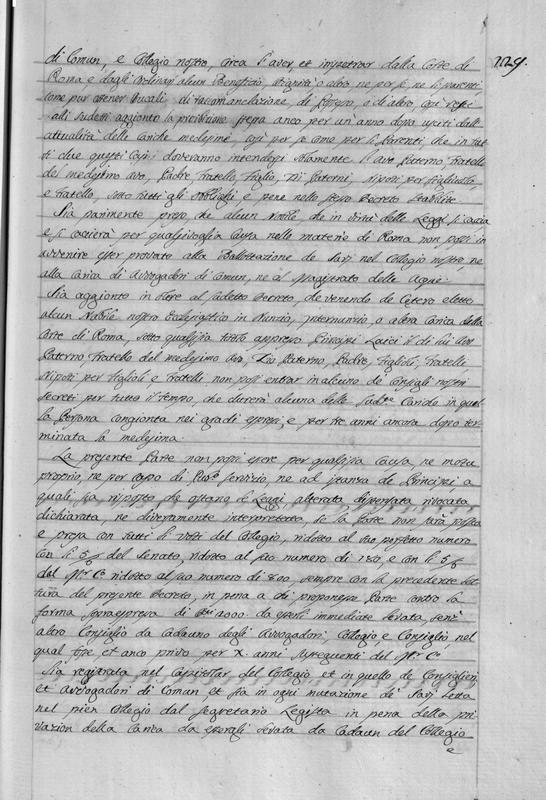 229.
di Comun, e Collegio nostro, circa l'aver, et impetrar dalla Corte di
Roma e dagli Ordinari alcun Beneficio, Dignità o altro, ne per se, ne li parenti
come pur ottener Brevali, di raccomandazione, di, o di altro, que
alli sudetti aggionto la previsione stessa anco per un'anno doppo usciti dall'
attualità delle Cariche medesime, così per se come per li Parenti, che in tut-
ti due questi Capi doveranno intendersi solamente l'Avo Paterno, Fratelli
del medesimo Avo, Padre, Fratello, Figlio, Zii Paterni, Nipoti per Figliuolo
e Fratello, sotto tutti gli oblighi e pene nello stesso Decreto stabilite.
Sia parimente preso, che alcun Nobile, che in virtù delle Leggi si caccia
e si cacierà per qualsivoglia Causa nelle materie di Roma non possi in
avvenire esser provato alla Ballottazione de Savi nel Collegio nostro, ne
alla Carica di Avvogadori di Comun, ne al Magistrato delle Aque.
Sia aggionto in oltre al sudetto Decreto, che venendo de Cetero eletto
alcun Nobile nostro Ecclesiastico in Nunzio, Internunzio, o altra Carica della
Corte di Roma, sotto qualsisia titolo appresso Principi Laici il di lui Avo
Paterno, Fratello del medesimo Avo, Zio Paterno, Padre, Figlioli, Fratelli,
Nipoti per Figlioli, e Fratelli non possi entrar in alcuno de Consegli nostri
secreti per tutto il tempo, che durerà alcuna delle Sudte Cariche in quel
la Persona congionta nei gradi espressi, e per tre anni ancora dopo ter-
minata la medesima.
La presente Parte non possi esser per qualsisia Causa, ne motu
proprio, ne per capo di Pubo servizio, ne ad istanza de Principi a
quali sia risposto che ostano le Leggi, alterata, dispensata, rivocata,
dichiarata, ne diversamente interpretata, se la Parte non sarà posta
e presa con tutti li voti del Collegio, ridotto al suo perfetto numero
con li 5/6 del Senato, ridotto al suo numero di 180, e con li 5/6
del Mr Co ridotto al suo numero di 800, sempre con la precedente let-
tura del presente Decreto, in pena a chi proponesse Parte contro la
forma sopraespressa di Dti 2000. da esserli immediate levata, senz'
altro Consiglio da cadauno degli Avvogadori, Collegio, e Consiglio, nel
qual fosse et anco privo per X. anni susseguenti del Mr Co
Sia registrata nel Capitolar del Collegio et in quello de Consiglieri,
et Avvogadori di Comun et sia in ogni mutazione de Savi Letta
nel pien Collegio dal Segretario Legista in pena della pri-
vazion della Carica da esserli levata da Cadaun del Collegio
e